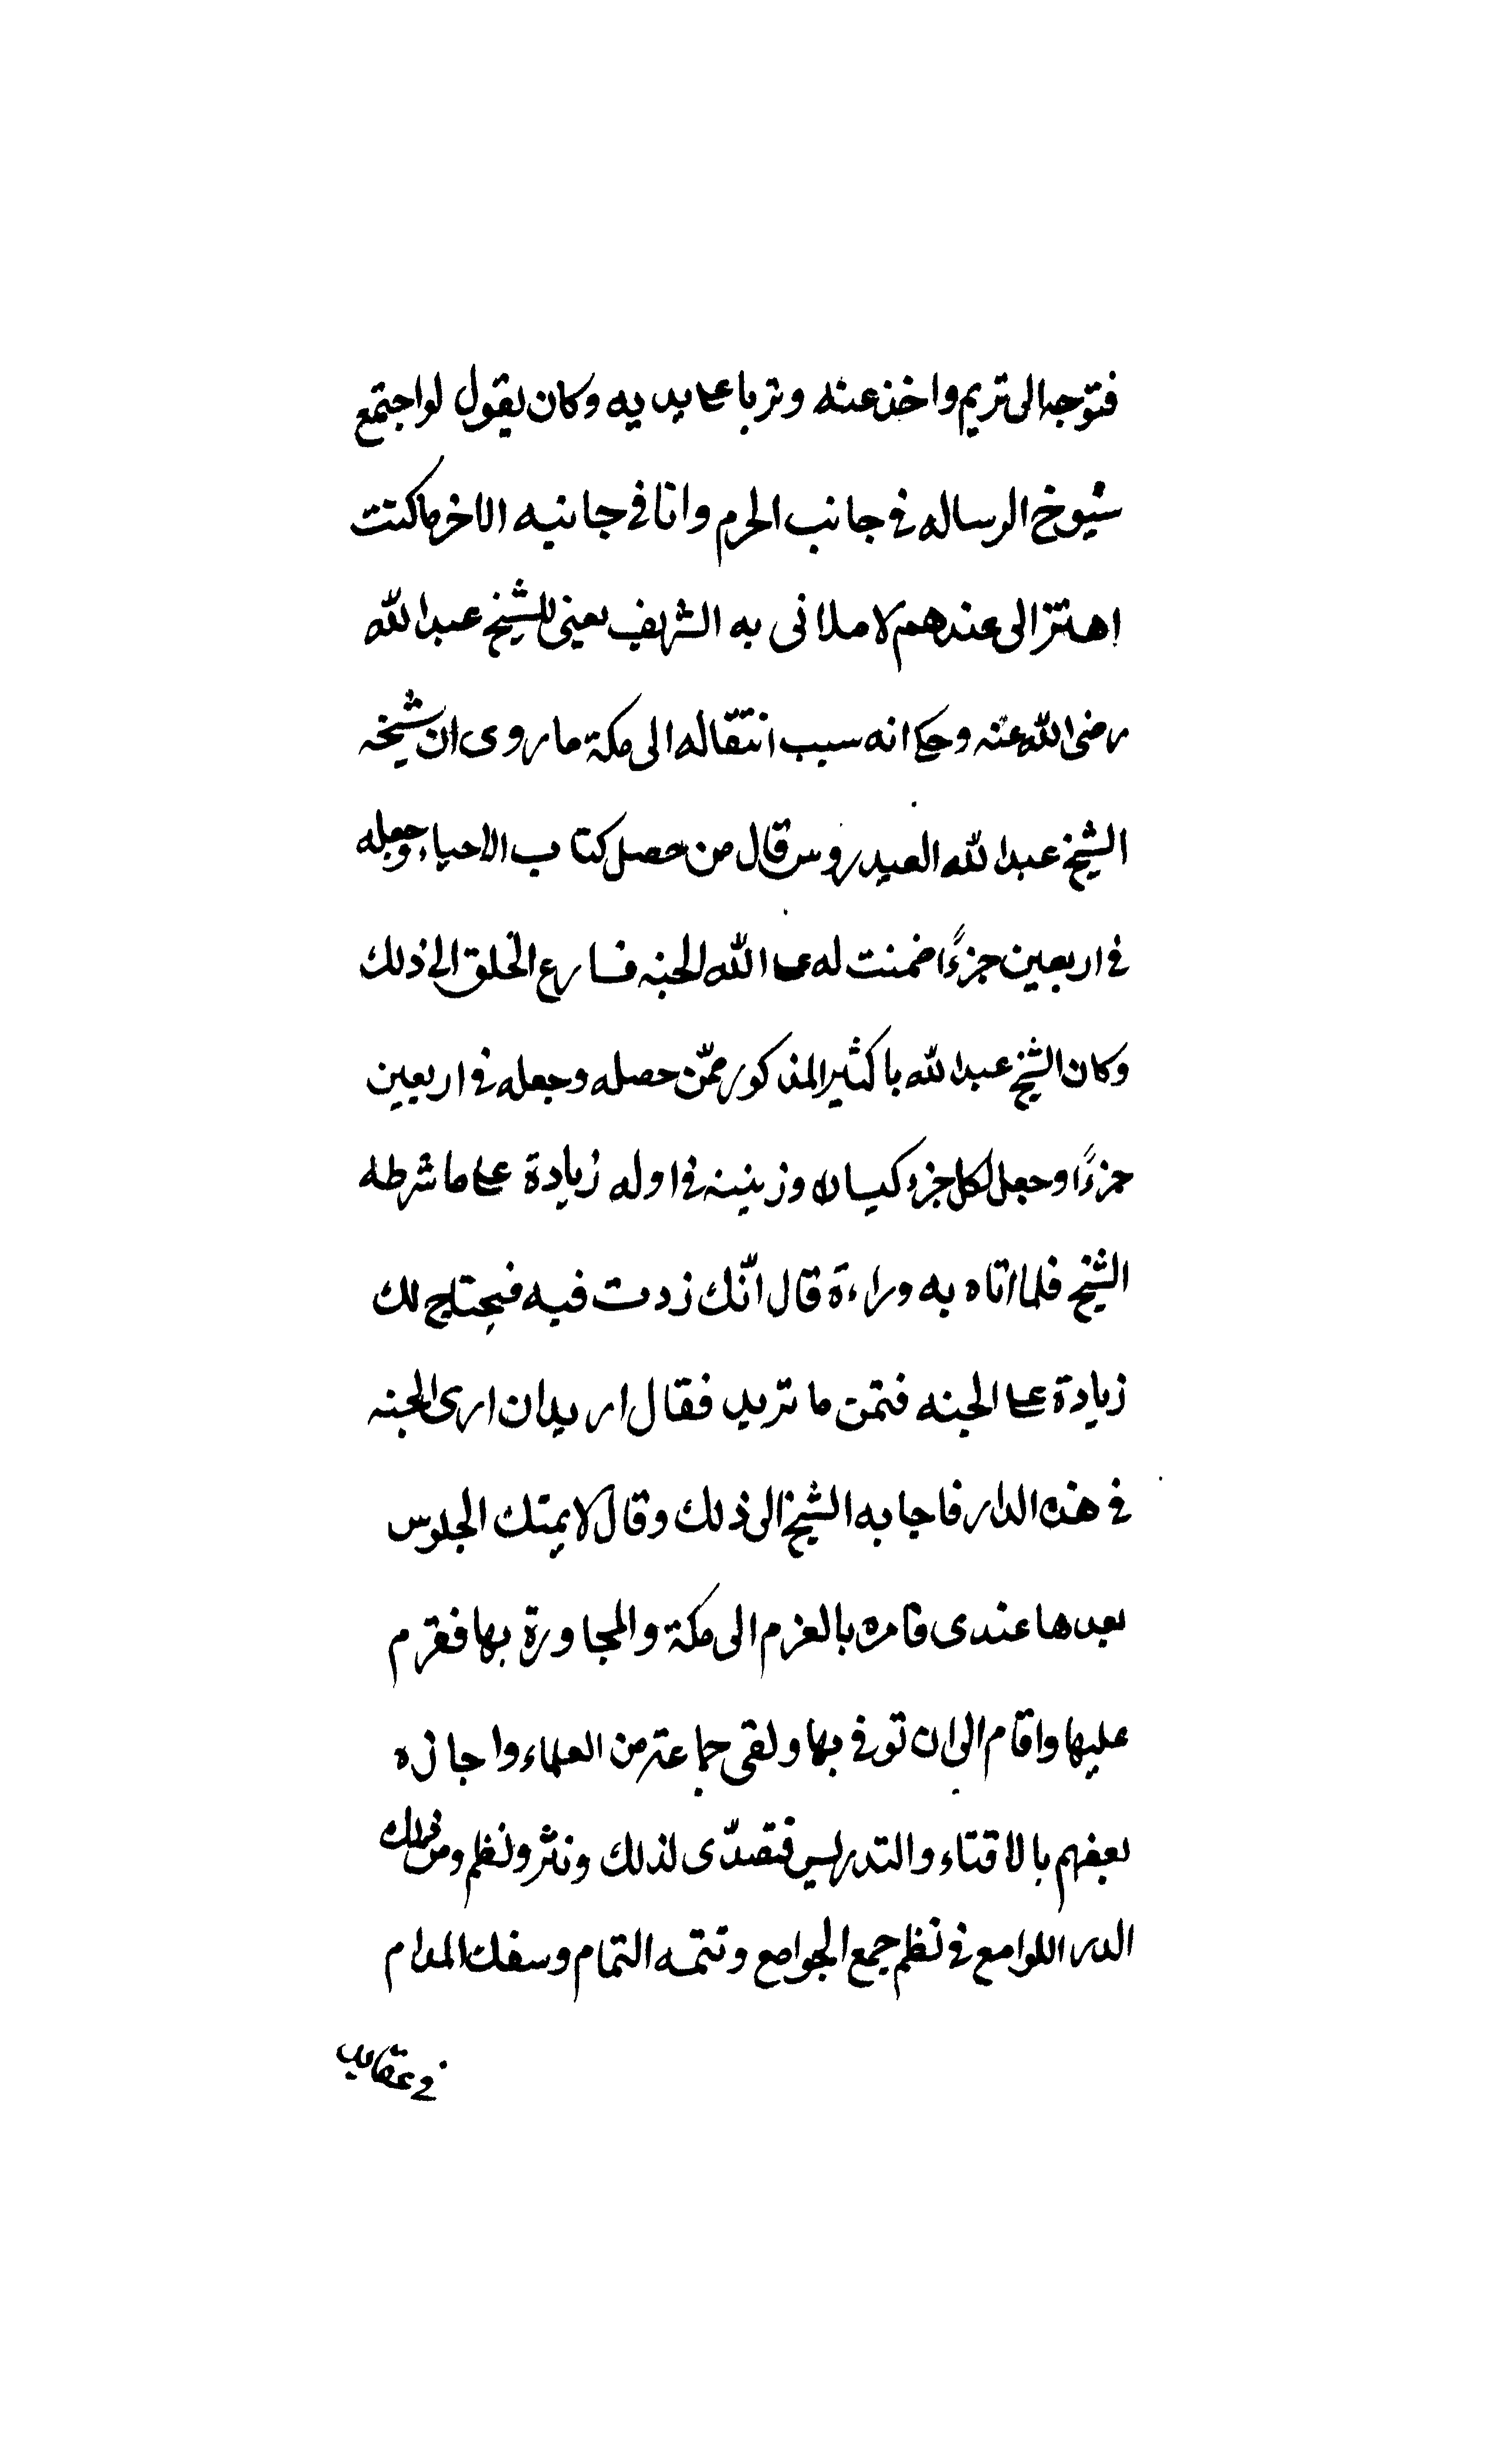 فتوجه الى تريم واخذ عنه وتربا على يديه وكان يقول لو اجتمع
شيوخ الرساله في جانب الحرم وانا في جانبه الاخر ما كنت
اهتز الى عندهم لا ملانى به الشريف يعنى الشيخ عبد الله
رضى الله عنه وحكى انه سبب انتقاله الى مكة ما روى ان شيخه
الشيخ عبد الله العيدروس قال من حصل كتاب الاحياء وجعله
في اربعين جزءًا ضمنت له على الله الجنه فسارع الخلق الى ذلك
وكان الشيخ عبد الله باكثير المذكور ممّن حصله وجعله في اربعين
جزءًا وجعل لكل جزء كيسا وزينه في اوله زيادة على ما شرطه
الشيخ فلما اتاه به وراءة قال انّك زدت فيه فيحتاج لك
زيادة على الجنه فتمن ما تريد فقال اريد ان ارى الجنه
في هذه الدار فاجابه الشيخ الى ذلك وقال لا يمتك الجلوس
بعدها عندى فامره بالعزم الى مكة والمجاورة بها فقرم
عليها واقام الى ان توفى بها ولقى جماعة من العلماء واجازه
بعضهم بالافتاء والتدريس فتصدّى لذلك ونثر ونظم ومن ذلك
الدرر اللوامع في نظم جمع الجوامع وتتمه التمام وسفك المدام
في عقايد